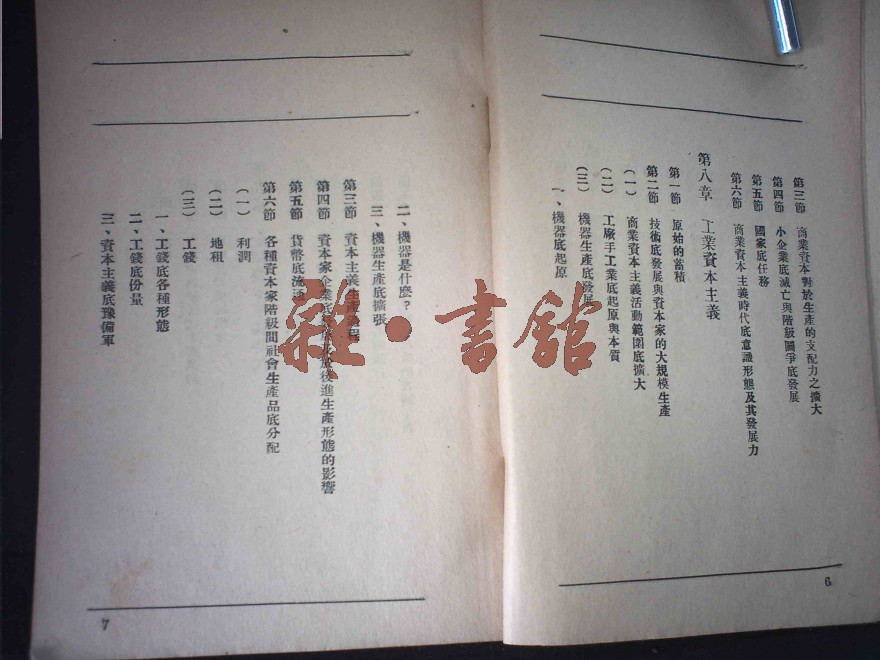 第三節 商業資本對於生產的支配力之擴大
第四節 小企業底滅亡與階級鬭爭底發展
第五節 國家底任務
第六節 商業資本主義時代底意識形態及其發展力
第八章 工業資本主義
第一節 原始的蓄積
第二節 技術底發展與資本家的大規模生產
(一) 商業資本主義活動範圍底擴大
(二) 工廠手工業底起原與本質
(三) 機器生產底發展
一、機器底起原
6
二、機器是什麼?
三、機器生產底擴張
第三節 資本主義生產
第四節 資本家企業底後進生產形態的影響
第五節 貨幣底流通
第六節 各種資本家階級間社會生產品底分配
(一) 利潤
(二) 地租
(三) 工錢
一、工錢底各種形態
二、工錢底份量
三、資本主義底豫備軍
7
雜·書舘